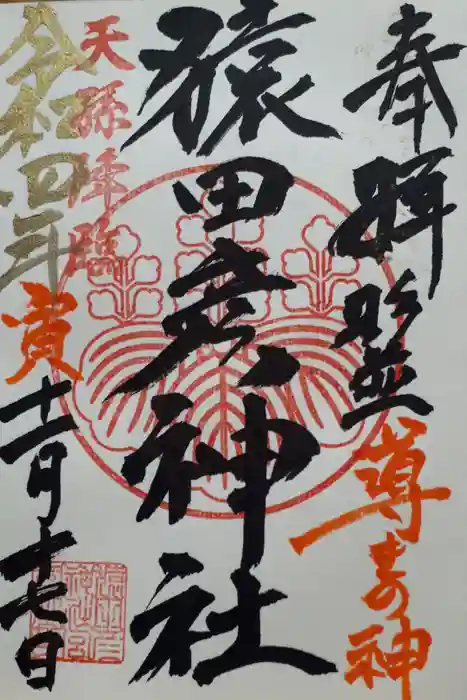 奉拝
導きの神
猿田彦神社
天孫降臨
令和四年
寅
十一月十七日